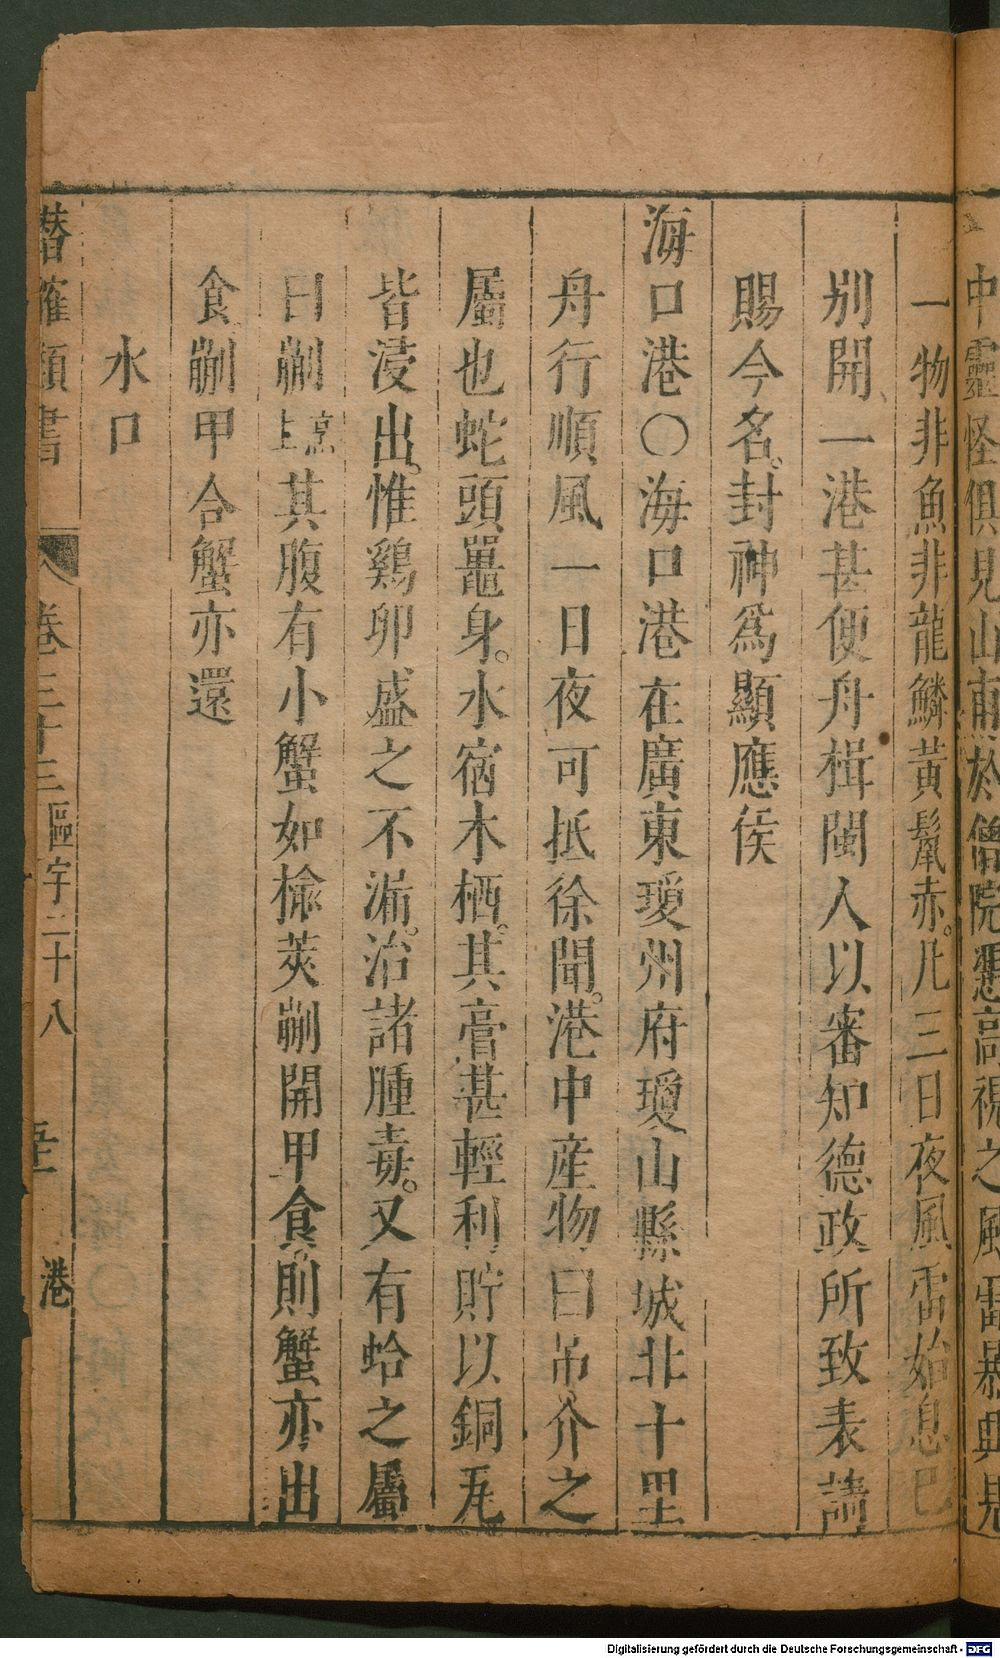 中靈怪俱見山南於僧院憑高視之風雷暴興見
一物非魚非龍鱗黃鬣赤凡三日夜風雷始息已
別開一港甚便舟楫閩人以審知德政所致表請
賜今名封神為顯應侯
海口港〇海口港在廣東瓊州府瓊山縣城北十里
舟行順風一日夜可抵徐聞港中産物曰吊介之
屬也蛇頭鼉身水宿木栖其膏甚輕利貯以銅瓦
皆浸出惟鷄卵盛之不漏治諸腫毒又有蛤之屬
曰蒯其腹有小蟹如榆莢蒯開甲食則蟹亦出
食蒯甲合蟹亦還
水口
潛確類書 卷三十三 區宇二十八 港
Digitalisierung gefördert durch die Deutsche Forschungsgemeinschaft - DFG